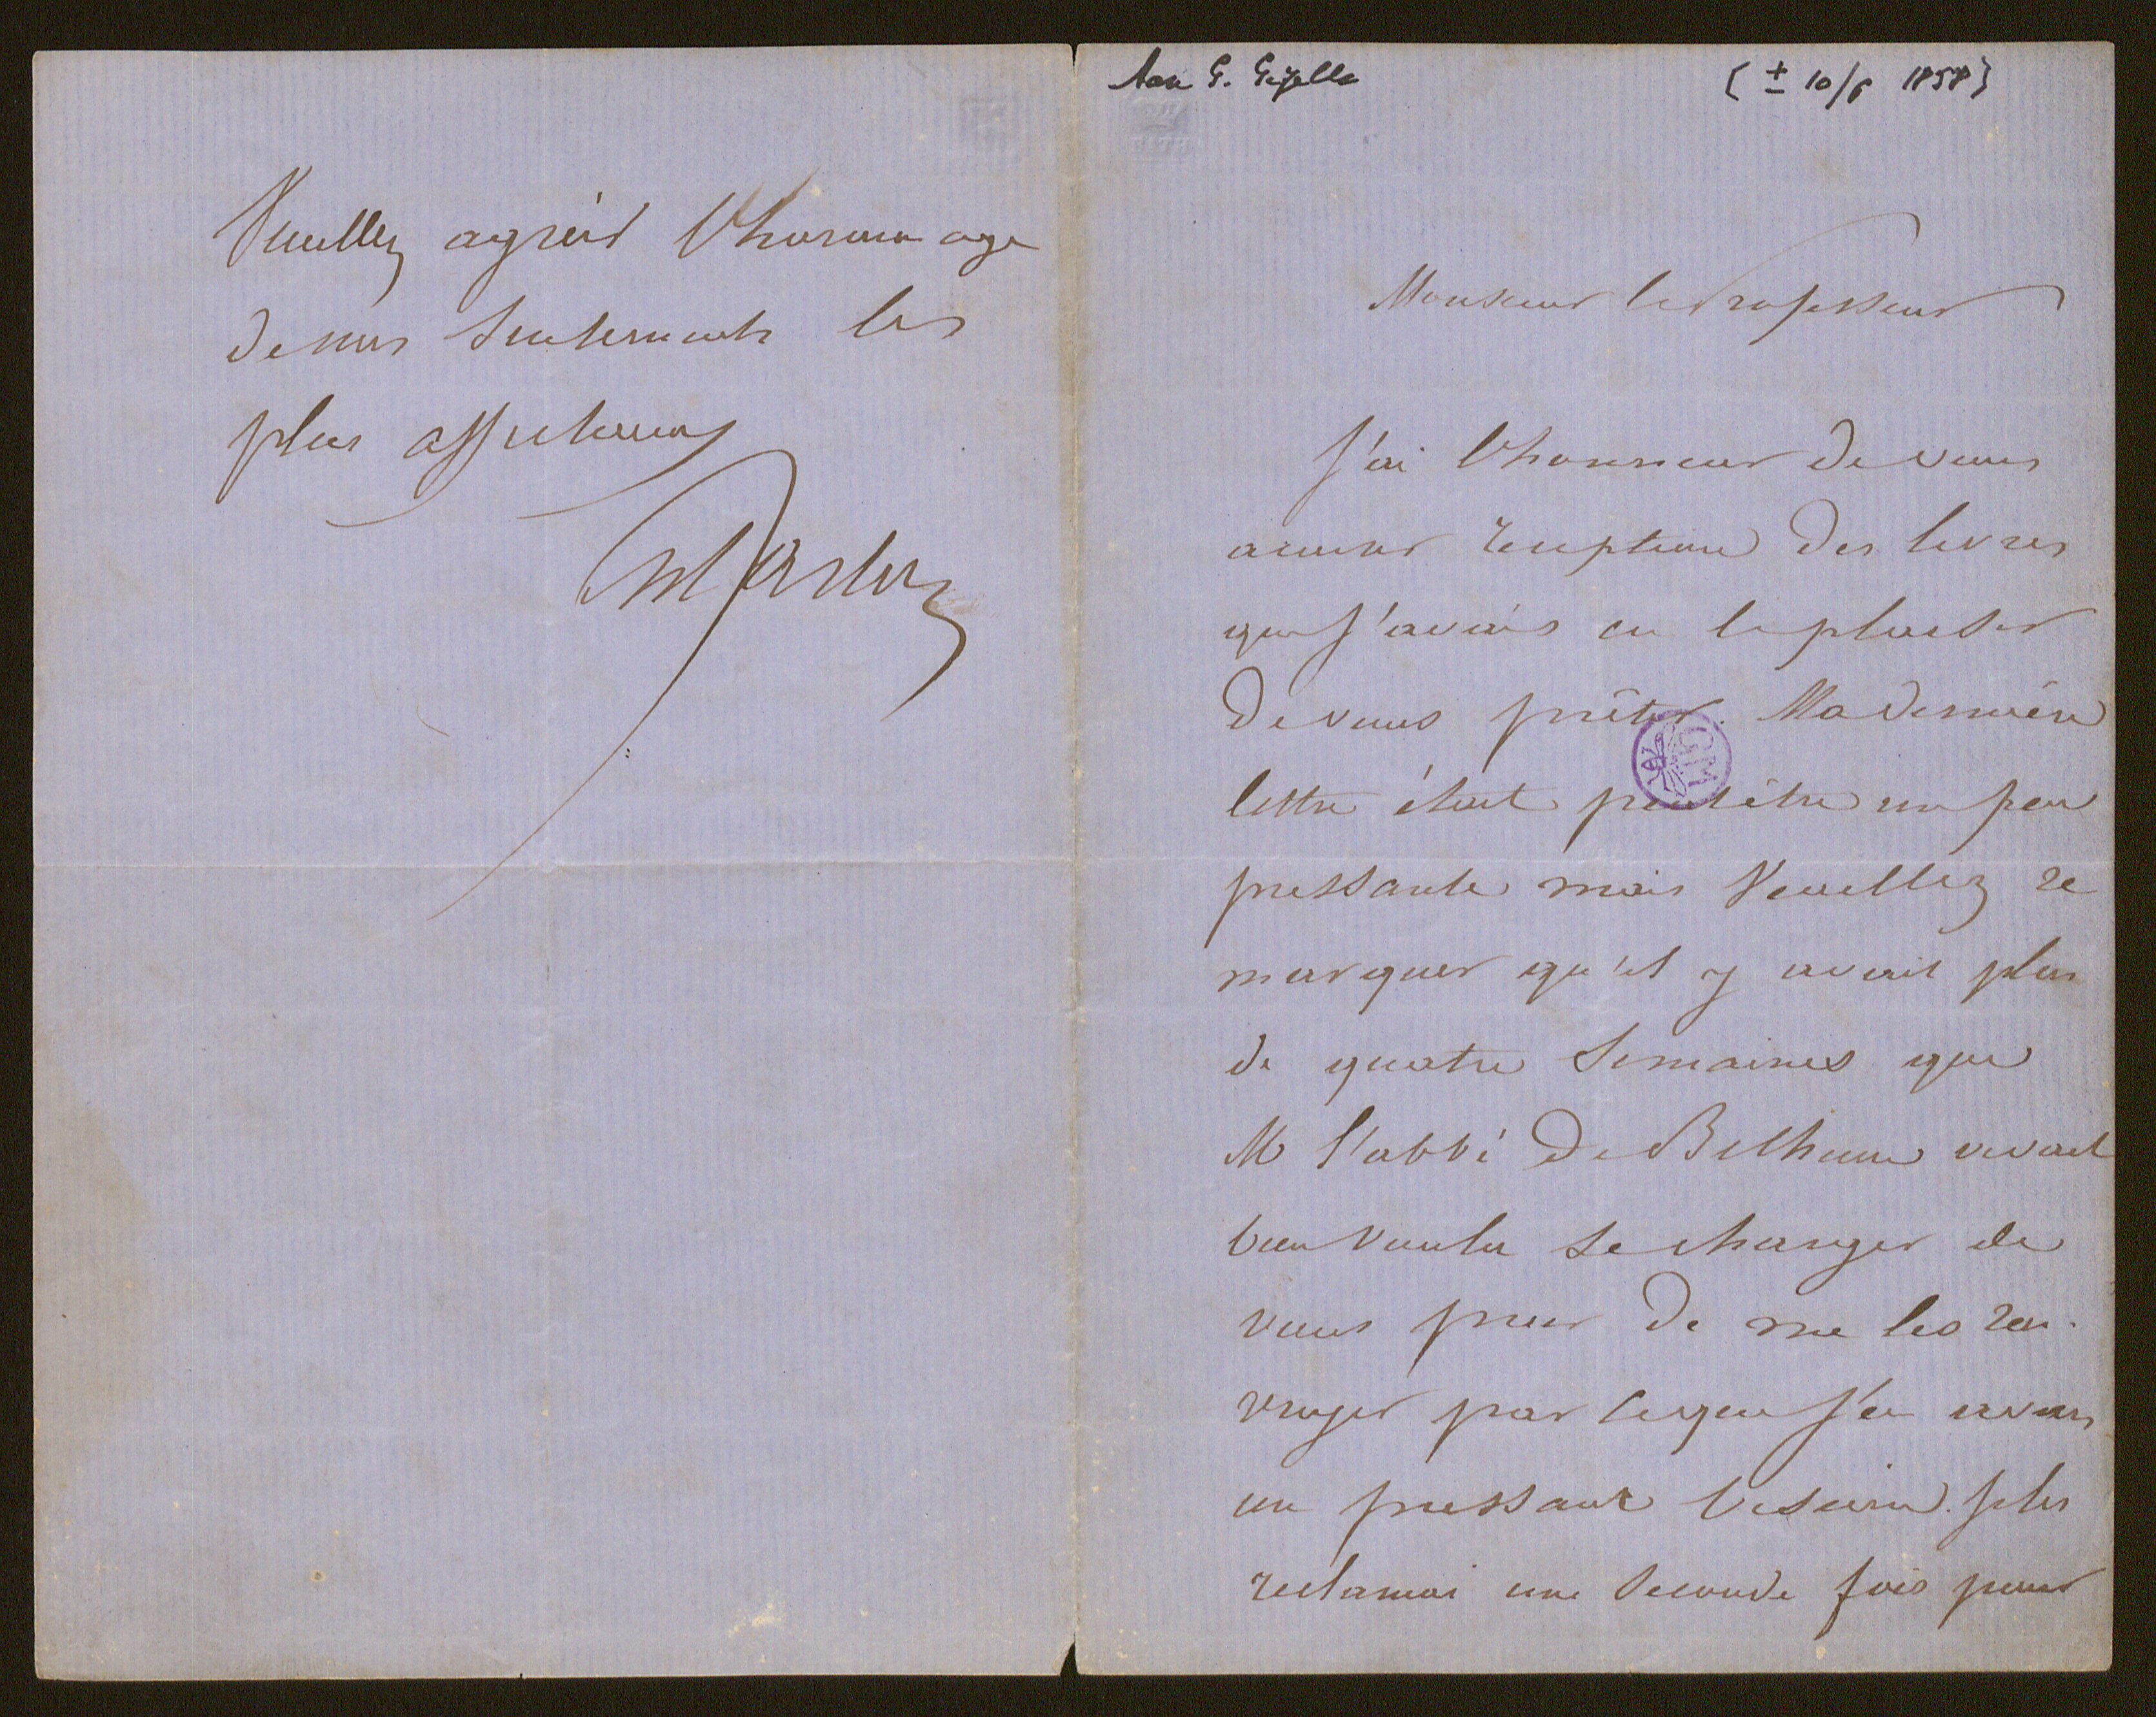 Aan G. Gezelle
[± 10/6 1858]
Monsieur le Professeur
J'ai l'honneur de vous
accuser reception des livres
que j'avais eu le plaisir
de vous prêter. Ma dernière
lettre était peutêtre un peu
pressante mais Veuillez re
marquer qu'il y avait plus
de quatre semaines que
M l'abbé De Bethune avait
bien voulu se charger de
vous prier de me les ren-
voyer parceque j'en avais
un pressant besoin. Je les
reclamai une seconde fois pour
GM
Veuillez agréer l'hommage
de mes sentiments les
plus affectueux